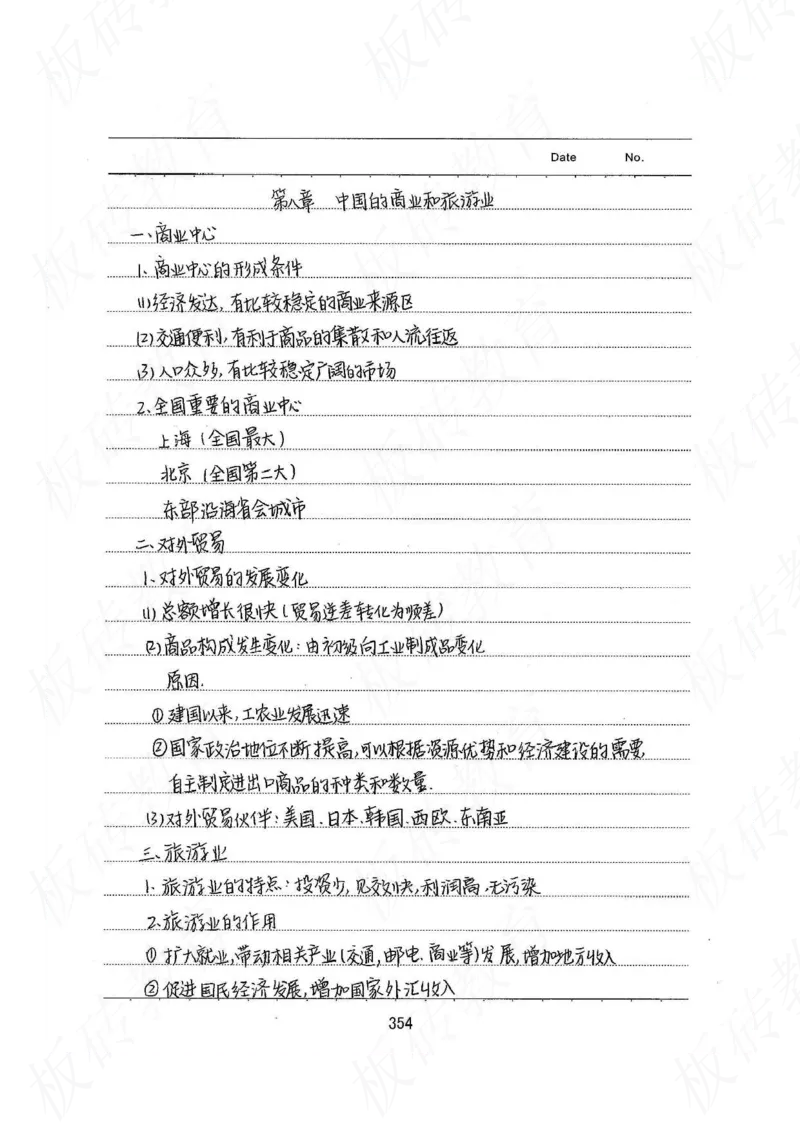 Date No.
第八章 中国的商业和旅游业
一、商业中心
1、商业中心的形成条件
(1)经济发达,有比较稳定的商业来源区
(2)交通便利,有利于商品的集散和人流往返
(3)人口众多,有比较稳定广阔的市场
2、全国重要的商业中心
上海(全国最大)
北京(全国第二大)
东部沿海省会城市
二、对外贸易
1、对外贸易的发展变化
(1)总额增长很快(贸易逆差转化为顺差)
(2)商品构成发生变化:由初级向工业制成品变化
原因.
①建国以来,工农业发展迅速
②国家政治地位不断提高,可以根据资源优势和经济建设的需要
自主制定进出口商品的种类和数量.
(3)对外贸易伙伴:美国、日本、韩国、西欧、东南亚
三、旅游业
1、旅游业的特点:投资少,见效快,利润高、无污染
2、旅游业的作用
①扩大就业,带动相关产业(交通,邮电、商业等)发展,增加地方收入
②促进国民经济发展,增加国家外汇收入
354
板砖教育